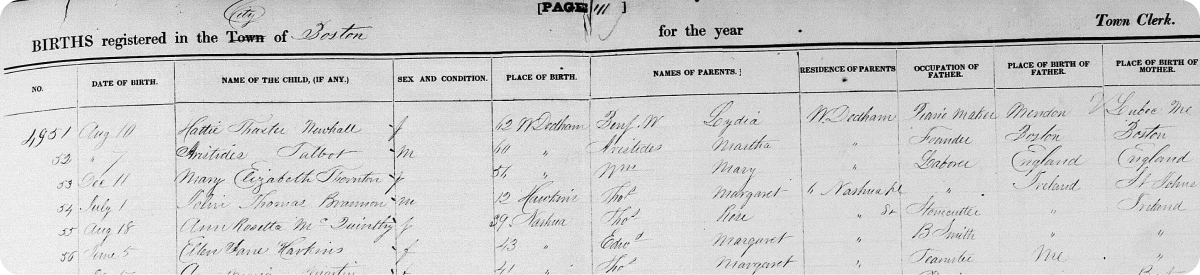 [PAGE 111
City
BIRTHS registered in the Town of Boston for the year Town Clerk.
NO. DATE OF BIRTH. NAME OF THE CHILD, (IF ANY.) SEX AND CONDITION. PLACE OF BIRTH. NAMES OF PARENTS. RESIDENCE OF PARENTS OCCUPATION OF FATHER. PLACE OF BIRTH OF FATHER. PLACE OF BIRTH OF MOTHER.
4951 Aug 10 Hattie Thaxter Newhall f 62 W. Dedham Benj. W Lydia W. Dedham Piano Maker Mendon Lubec Me
52 " 7 Aristides Talbot m 60 " Aristides Martha " Founder Boston Boston
53 Dec 11 Mary Elizabeth Thornton f 56 " Wm Mary " Laborer England England
54 July 1 John Thomas Brannon m 12 Hawkins Thos Margaret Nashua " Ireland St Johns
55 Aug 18 Ann Rosetta 29 Nashua Thos Rose " Stonecutter " Ireland
56 June 5 Ellen Jane Harkins f 43 " Edwd Margaret " B Smith " "
41 " Thos Margaret " Teamster Me "